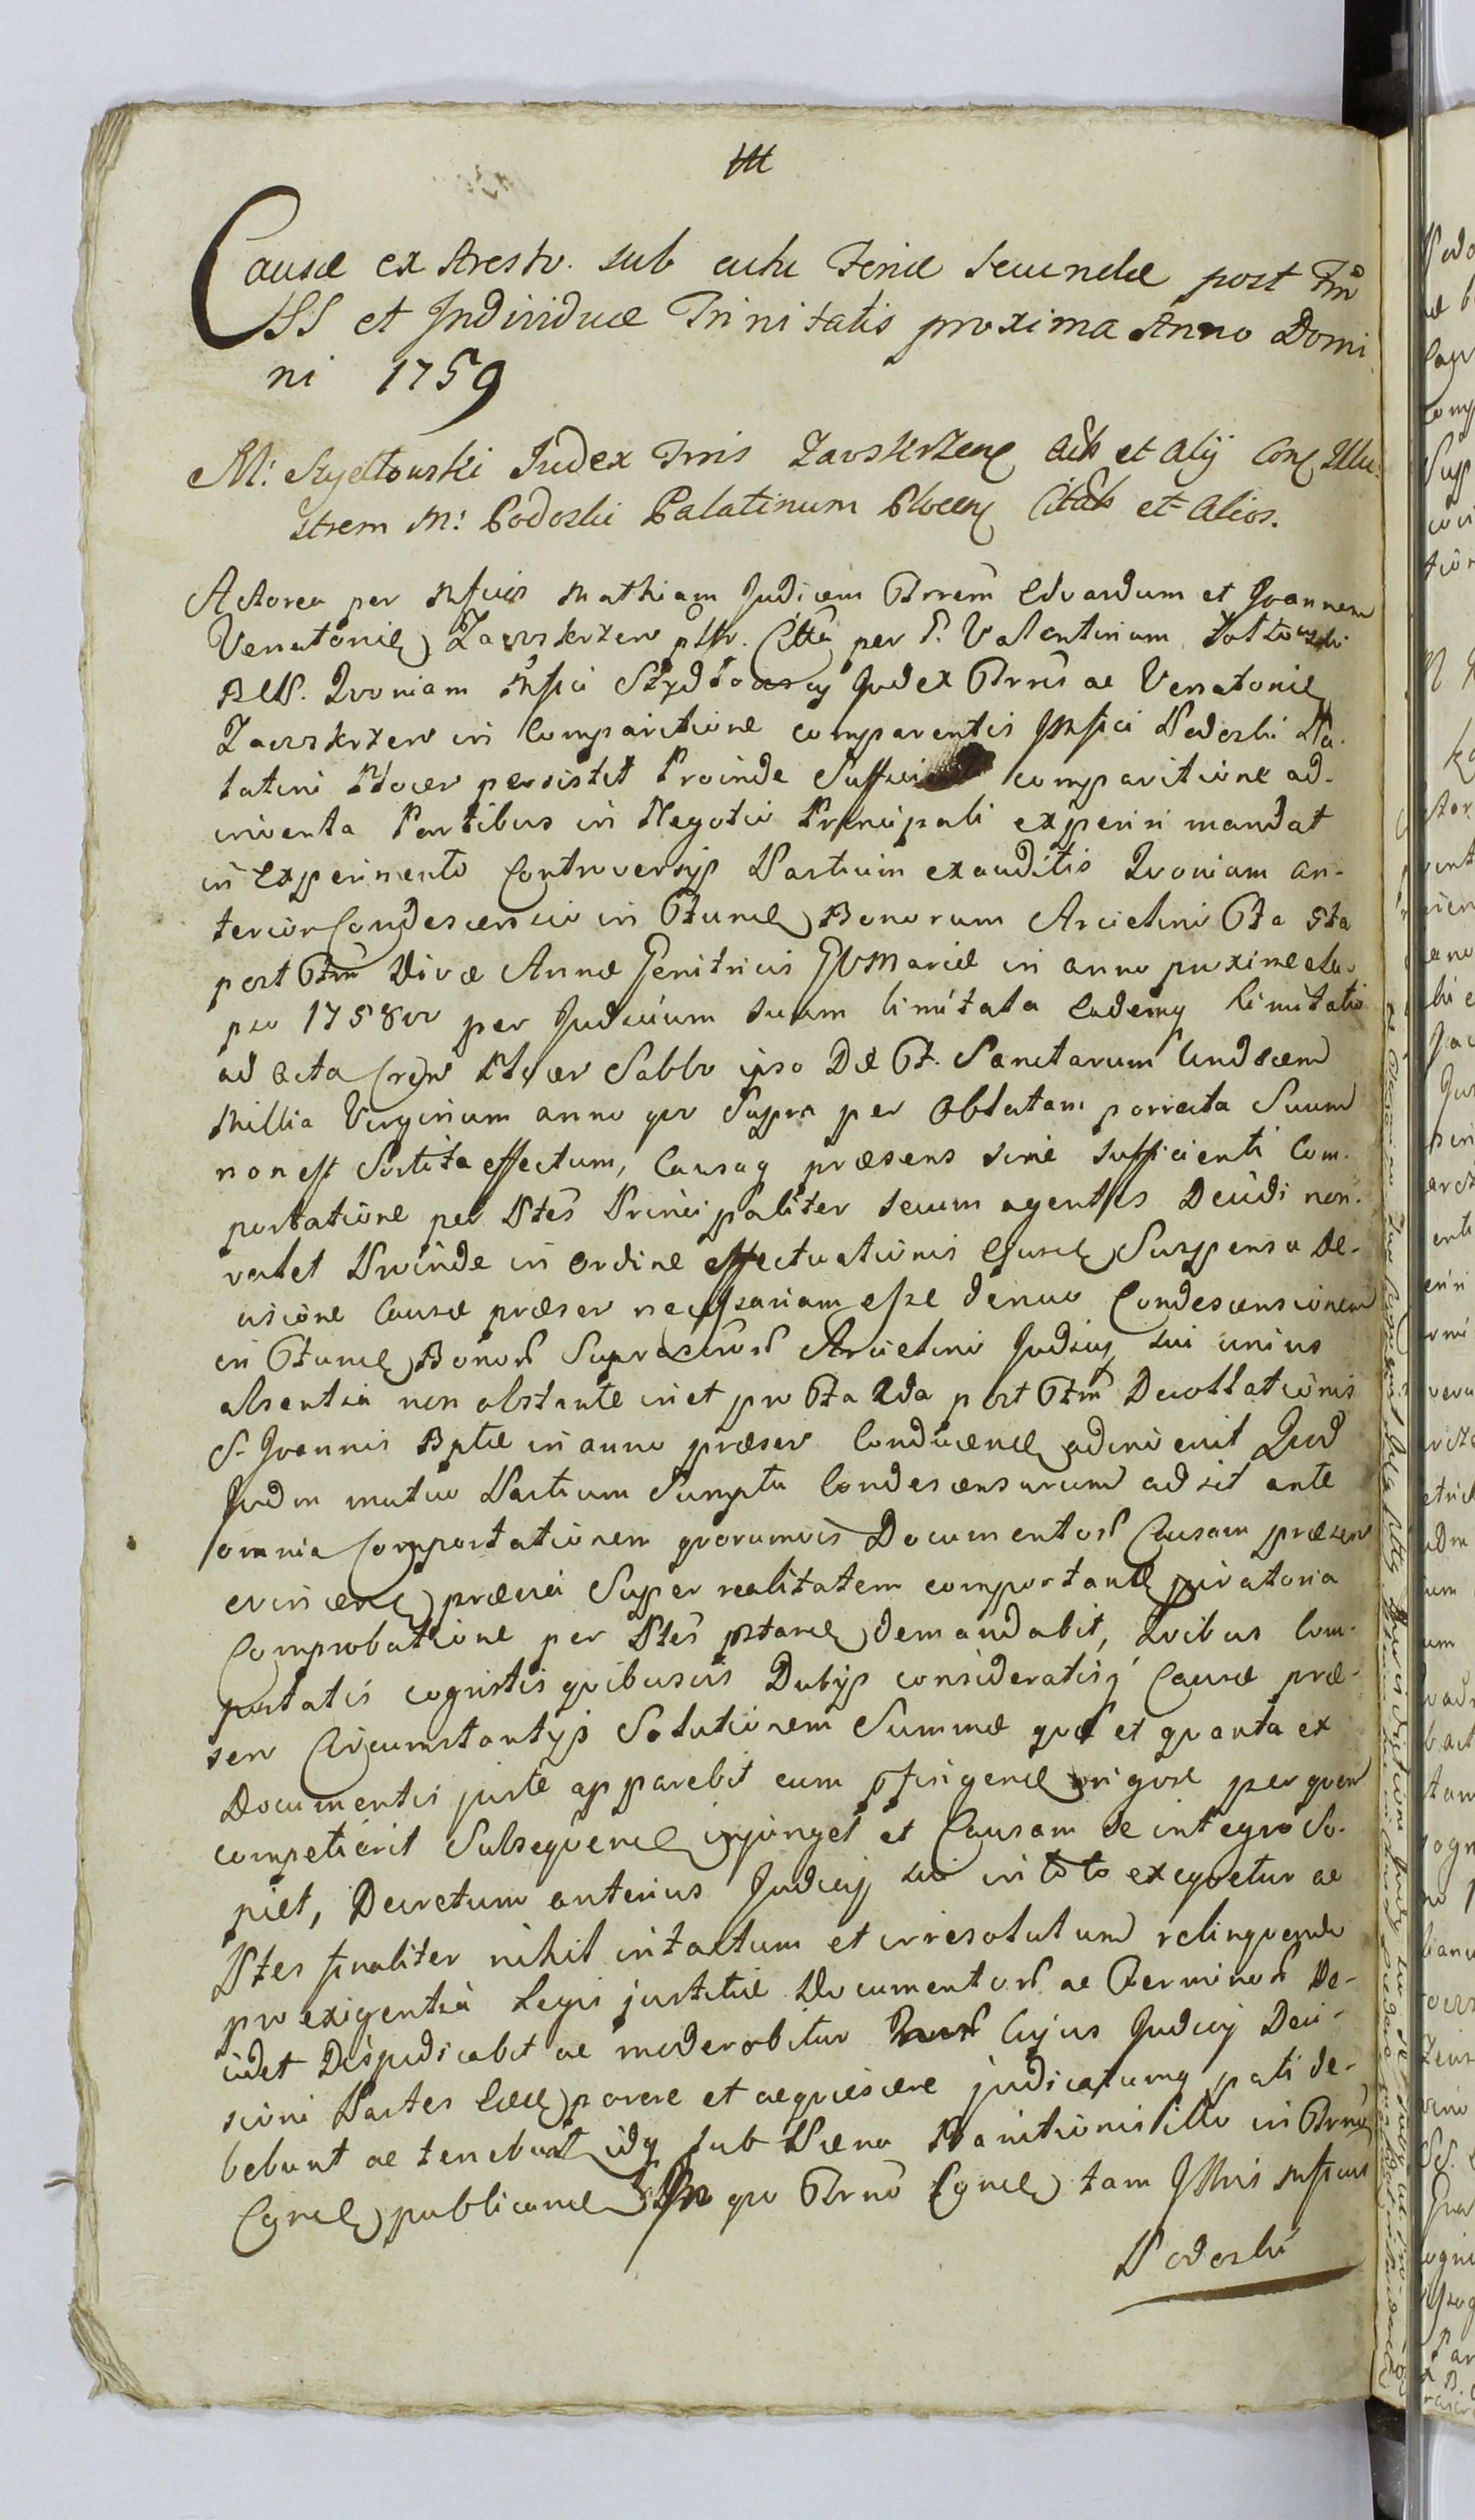 Causæ ex Arresto. sub actu Feriæ Secundæ post Fm̃
SS et Individuæ Trinitatis proxima Anno Domi
ni 1759
M: Szydłowski Judex Trris Zawskrzen Actr et Alij Con Illu-
strem M: Podoski Palatinum Plocen Citatt et Alios.
Actorea per Mfcos Mathiam Judicem Trrem Edvardum et Joannem
Venatorie Zawskrzen pstr. Citta per G. Valentinum
Quoniam Mfci Szydłowscy Judex Trris ac Venatorie
Zawskrzen in Comparitione comparentis JMfci Podoski Pa-
latini Plocen persistit Proinde Sufficienti comparitione ad-
inventa Partibus in Negotio Principali experiri mandat
in Experimento Controversijs Partium exauditis Qvoniam an-
terior Condescensio in Ftume Bonorum Arcielin Fta 5ta
post Ftm Divæ Annæ Genitricis GVMariæ in anno proxime ela-
pso 1758vo per Judicium suum limitata Eademq limitatio
ad Acta Plocen Sabbo ipso Die Ft. Sanctarum Undecem
Millia Virginum anno qvo Supra per Oblatam porrecta Suum
non est Sortita effectum, Causaq præsens sine sufficienti Com-
portatione per Ptes Principaliter secum agentes Decidi non
valet Proinde in ordine effectuationis Ejusd Suspensa De-
cisione Causæ præsen necessariam esse denuo Condescensionem
in Ftume Bonor Suprascror Arcielin Judicij sui unius
absentia non obstante in et pro Fta 2da post Ftm Decollationis
S. Joannis Bptæ in anno præsen Conducend adinvenit Quod
Judm mutuo Partium Sumptu Condescensurum ad sit ante
omnia Comportationem qvorumvis Documentor Causam præsen
evincen prævia Super realitatem comportand juratoria
Comprobatione per Ptes pstand demandabit, Qvibus Com-
portatis cognitis qvibusvis Dubijs consideratisq Causæ præ-
sen Circumstantijs Solutionem Summæ qvæ et qvanta ex
Documentis juste apparebit cum per qvem
competierit Subseqvend injunget et Causam de integro So-
piet, Decretum anterius Judicij sui in toto exeqvetur ac
Ptes finaliter nihil intactum et irresolutum relinqvendo
pro exigentia Legis justitiæ Documentor ac Terminor De-
cidet Dispudicabit ac moderabitur Cujus Judicij Deci-
sioni Partes Eæd parere et acqviescere judicatumq pati de-
bebunt ac tenebunt idq sub Pæna Banitionis illo in Trno
Cgnd publicand In qvo Trno Cgnd tam JMris Mfcus
Podoski